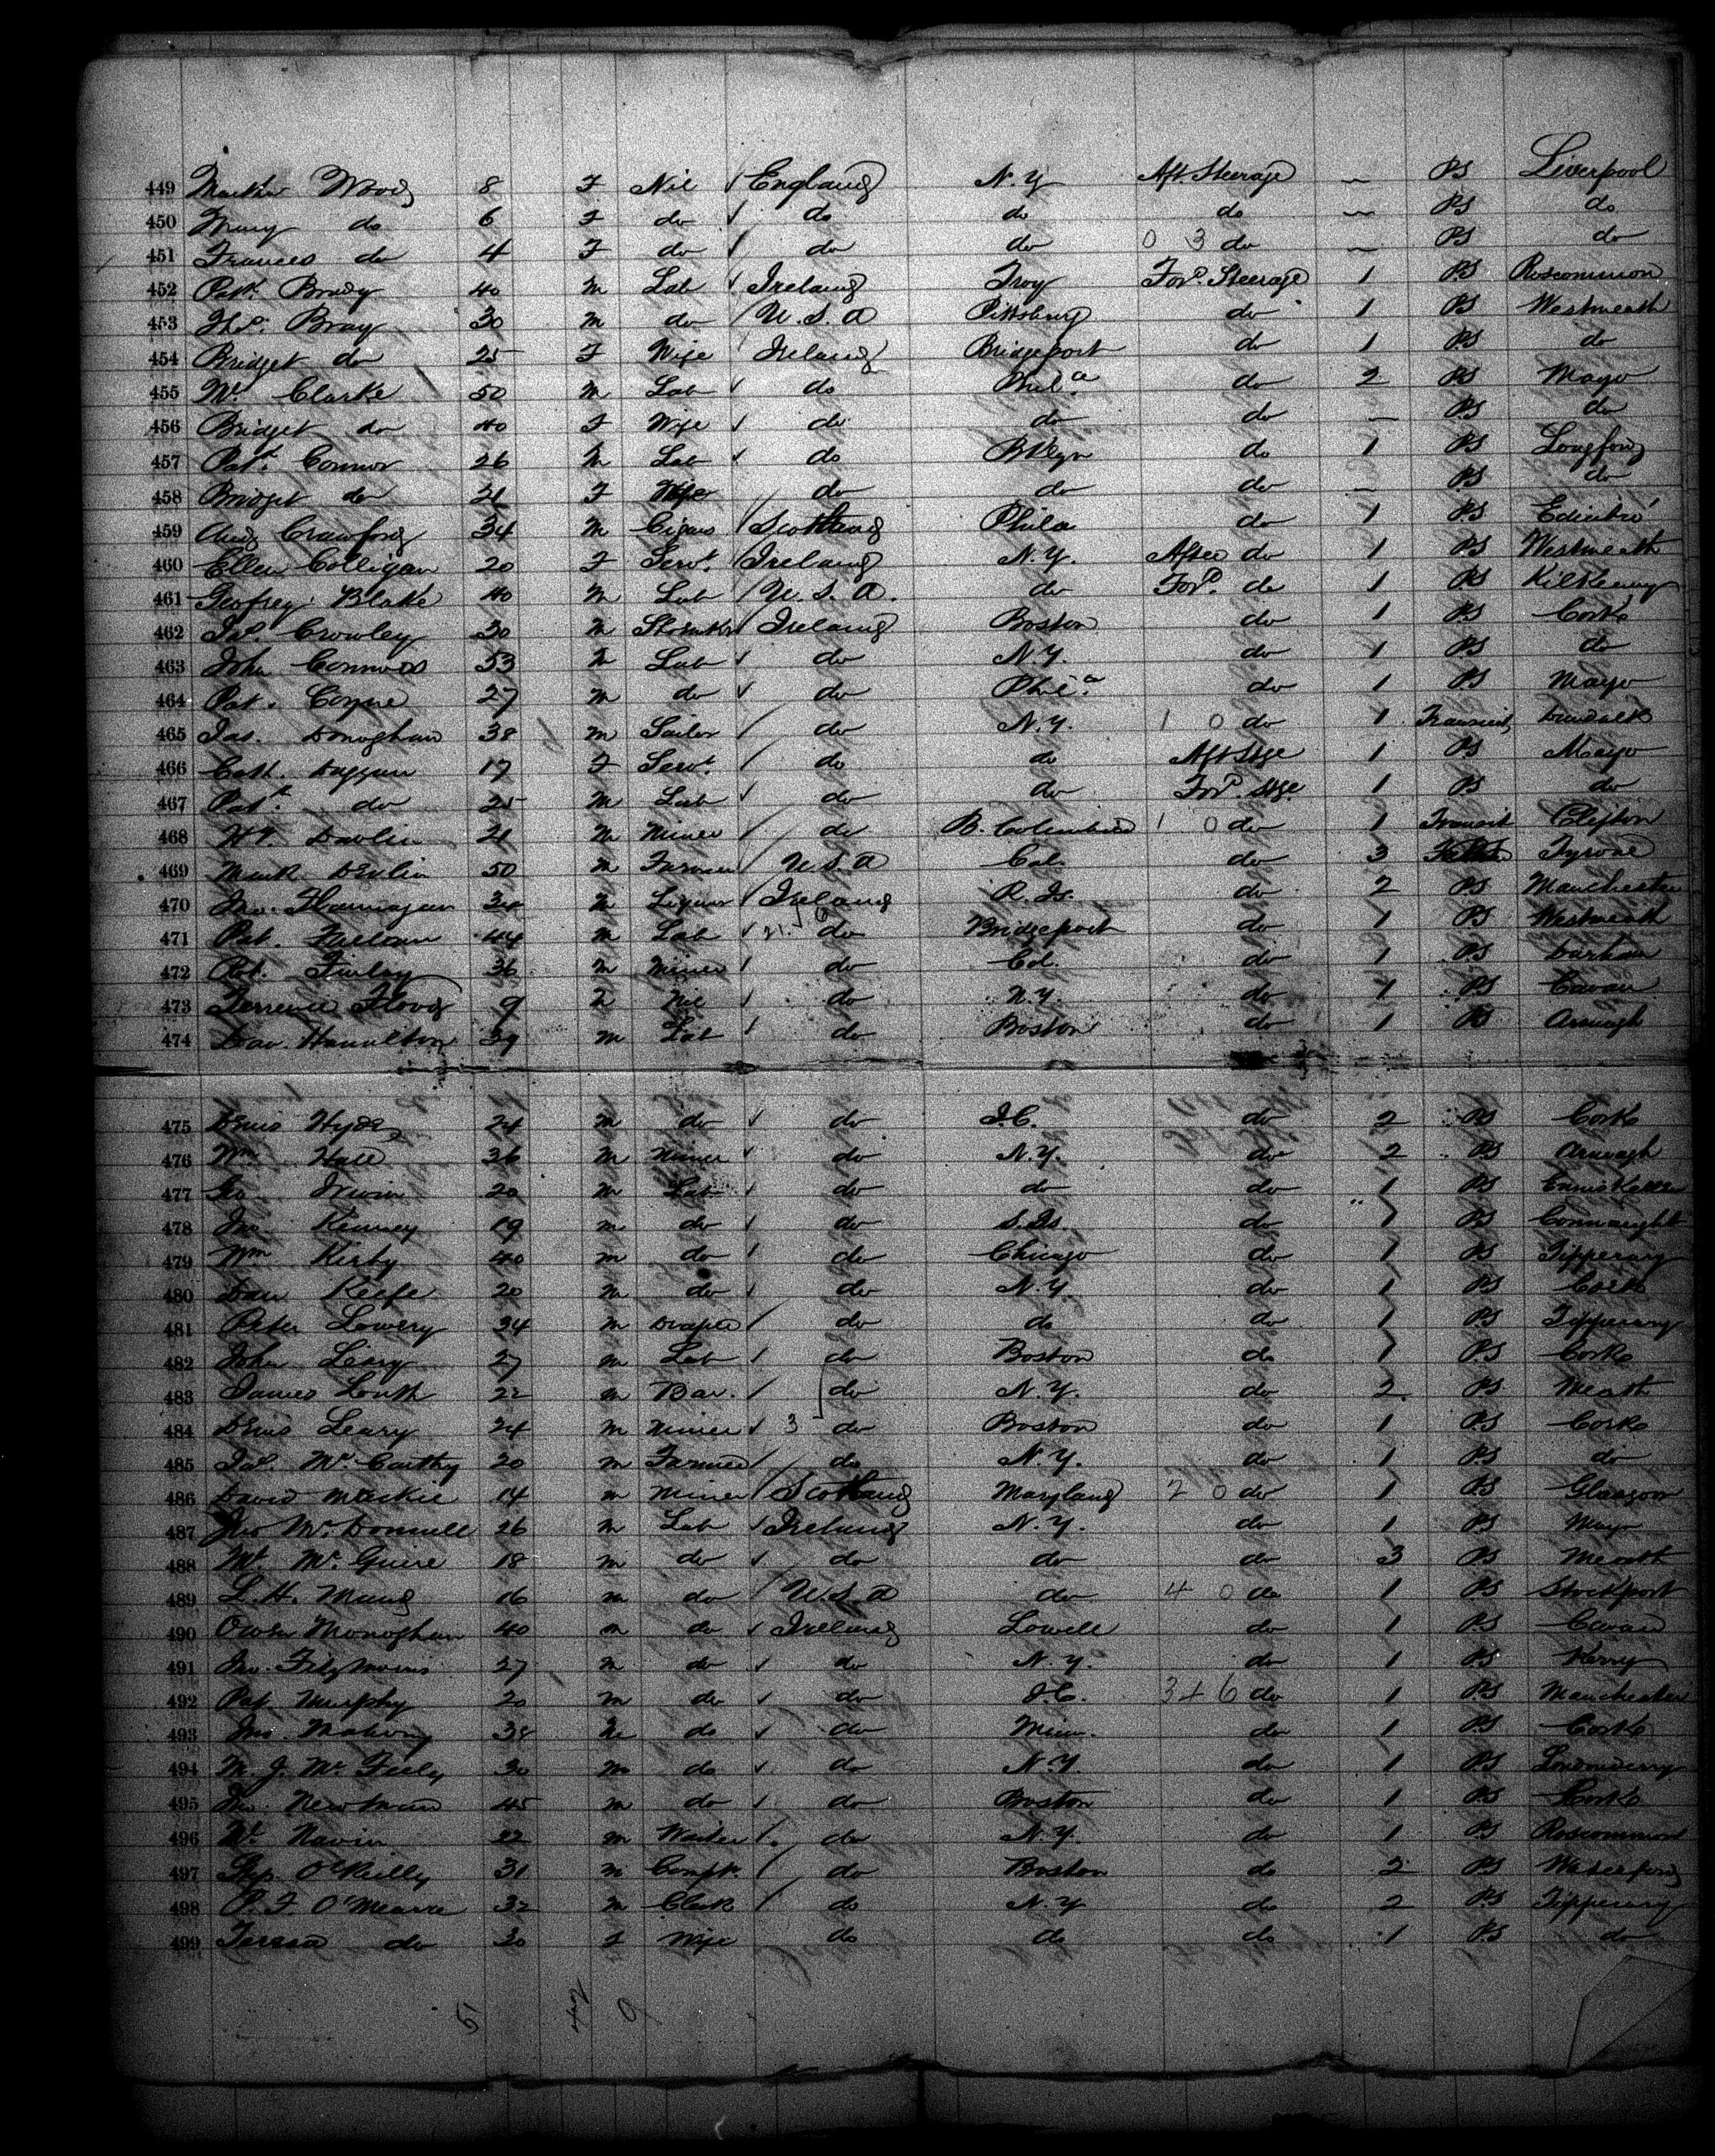 449 Martha Wood 8 F Nil ✓ England N.Y Aft. Steerage — PS Liverpool
450 Mary do 6 F do ✓ do do do — PS do
451 Frances do 4 F do ✓ do do 0 3 do — PS do
452 Patk. Brady 40 M Lab ✓ Ireland Troy Ford. Steerage 1 PS Roscommon
453 Thos. Bray 30 M do / U.S.A Pittsburg do 1 PS Westmeath
454 Bridget do 25 F Wife Ireland Bridgeport do 1 PS do
455 Wm. Clarke 50 M Lab ✓ do Phila do 2 PS Mayo
456 Bridget do 40 F Wife ✓ do do do — PS do
457 Patk. Connor 26 M Lab ✓ do BKlyn do 1 PS Longford
458 Bridget do 21 F Wife / do do do — PS do
459 Andw Crawford 34 M Cigars / Scotland Phila do 1 PS Edinbro'
460 Ellen Colligan 20 F Servt. / Ireland N.Y. After do 1 PS Westmeath
461 Geofrey Blake 40 M Lab / U.S.A. do Ford. do 1 PS Kilkenny
462 Jas. Crowley 30 M / Ireland Boston do 1 PS Cork
463 John Connors 53 M Lab ✓ do N.Y. do 1 PS do
464 Pat. Coyne 27 M do ✓ do Phila do 1 PS Mayo
465 Jas. Donoghue 38 M Sailor / do N.Y. 1 0 do 1 Transit Dundalk
466 Cath. Duggan 17 F Servt. / do do Aft Stge 1 PS Mayo
467 Patk. do 25 M Lab ✓ do do Ford. Stge 1 PS do
468 Devlin 21 M Miner / do B. Columbia 1 0 do 1 Transit Clifton
469 Mark Devlin 50 M Farmer / U.S.A Cal. do 3 Tyrone
470 Jno. Flannagan 34 M Liquor / Ireland R.Is. do 2 PS Manchester
471 Pat. 44 M Lab ✓ do Bridgeport do 1 PS Westmeath
472 Pat. Finlay 36 M Miner / do Col. do 1 PS Durham
473 Terrence Flood 9 M Nil / do N.Y. do 1 PS Cavan
474 Dav. Hamilton 39 M Lab / do Boston do 1 PS Armagh
475 Denis Hyde 24 M do ✓ do J.C. do 2 PS Cork
476 Wm Hall 36 M Miner ✓ do N.Y. do 2 PS Armagh
477 Geo. Irwin 20 M Lab ✓ do do do 1 PS Enniskillen
478 Jno. Kenney 19 M do ✓ do S.Is. do 1 PS Connaught
479 Wm Kirby 40 M do / do Chicago do 1 PS Tipperary
480 Dan Keefe 20 M do ✓ do N.Y. do 1 PS Cork
481 Peter Lowery 34 M Draper / do do do 1 PS Tipperary
482 John Leary 27 M Lab / do Boston do 1 PS Cork
483 James Louth 22 M Bar. / do N.Y. do 2 PS Meath
484 Denis Leary 24 M Miner ✓ 3 do Boston do 1 PS Cork
485 Jas. McCarthy 20 M Farmer / do N.Y. do 1 PS do
486 David Mackie 14 M Miner / Scotland Maryland 2 0 do 1 PS Glasgow
487 Jno McDonnell 26 M Lab ✓ Ireland N.Y. do 1 PS Mayo
488 McGuire 18 M do ✓ do do do 3 PS Meath
489 L.H. 16 M do / U.S.A do 4 0 do 1 PS Stockport
490 Owen Monoghan 40 M do ✓ Ireland Lowell do 1 PS Cavan
491 Jno. Fitzmorris 27 M do ✓ do N.Y. do 1 PS Kerry
492 Pat Murphy 20 M do ✓ do J.C. 3 4 6 do 1 PS Manchester
493 Jno. Mahony 38 M do ✓ do Minn. do 1 PS Cork
494 M.J. McFeely 30 M do ✓ do N.Y. do 1 PS Londonderry
495 Jno. Newman 45 M do / do Boston do 1 PS Cork
496 Navin 22 M Waiter / do N.Y. do 1 PS Roscommon
497 O'Reilly 31 M / do Boston do 2 PS Waterford
498 P.F. O'Meara 32 M Clerk / do N.Y do 2 PS Tipperary
499 Teresa do 30 F Wife do do do 1 PS do